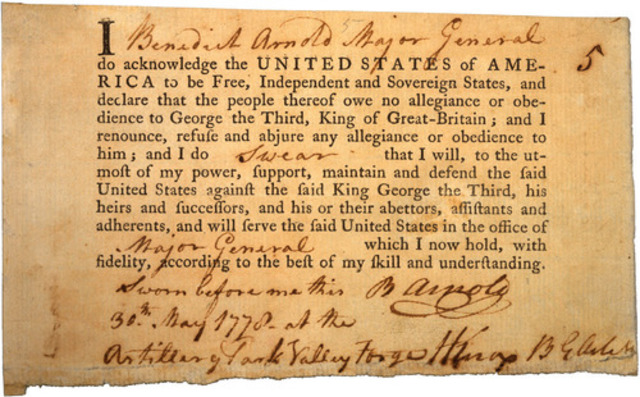 I Benedict Arnold Major General
5
do acknowledge the UNITED STATES of AME-
RICA to be Free, Independent and Sovereign States, and
declare that the people thereof owe no allegiance or obe-
dience to George the Third, King of Great-Britain; and I
renounce, refuſe and abjure any allegiance or obedience to
him; and I do swear that I will, to the ut-
moſt of my power, ſupport, maintain and defend the ſaid
United States againſt the ſaid King George the Third, his
heirs and ſucceſſors, and his or their abettors, aſſiſtants and
adherents, and will ſerve the ſaid United States in the office of
Major General which I now hold, with
fidelity, according to the beſt of my ſkill and underſtanding.
Sworn before me this B Arnold
30th May 1778 at the
Artillery Park Valley Forge HKnox B G Artily